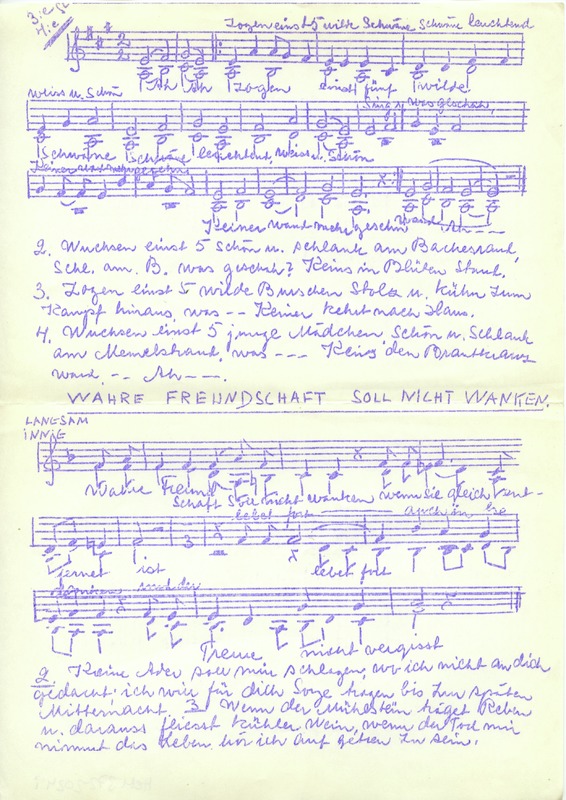 3. ie
4. ie
Zogen einst 5 wilde Schwäne Schwäne leuchtend
Ah Ah Zogen einst fünf wilde
weiss u. Schön
Sing, was geschah,
Schwäne Schwäne leuchtend, weiss u. Schön
Keiner ward mehr gesehn
Keiner ward mehr gesehn, ward Ah---
2. Wuchsen einst 5 Schön u. schlank am Bachesrand,
Schl. am. B. was geschah? Keins in Blüten Stand.
3. Zogen einst 5 wilde Burschen Stolz u. kühn zum
Kampf hinaus, was -- Keiner kehrt nach Haus.
4. Wuchsen einst 5 junge Mädchen Schön u. Schlank
am Memelstrand, was --- Keins den Brautkranz
wand, -- Ah---.
WAHRE FREUNDSCHAFT SOLL NICHT WANKEN.
LANGSAM
INNIG
Wahre Freund
schaft soll nicht wanken wenn sie gleich ent-
lebet fort auch in
fernet ist lebet fort
Treue nicht vergisst
2. Keine Ader soll mir schlagen, wo ich nicht an dich
gedacht, ich will für dich Sorge tragen bis zum späten
Mitternacht. 3. Wenn der Mühlstein träget Reben
u. daraus fliesst kühler Wein, wenn der Tod mir
nimmt das Leben hör ich auf getreu zu sein.